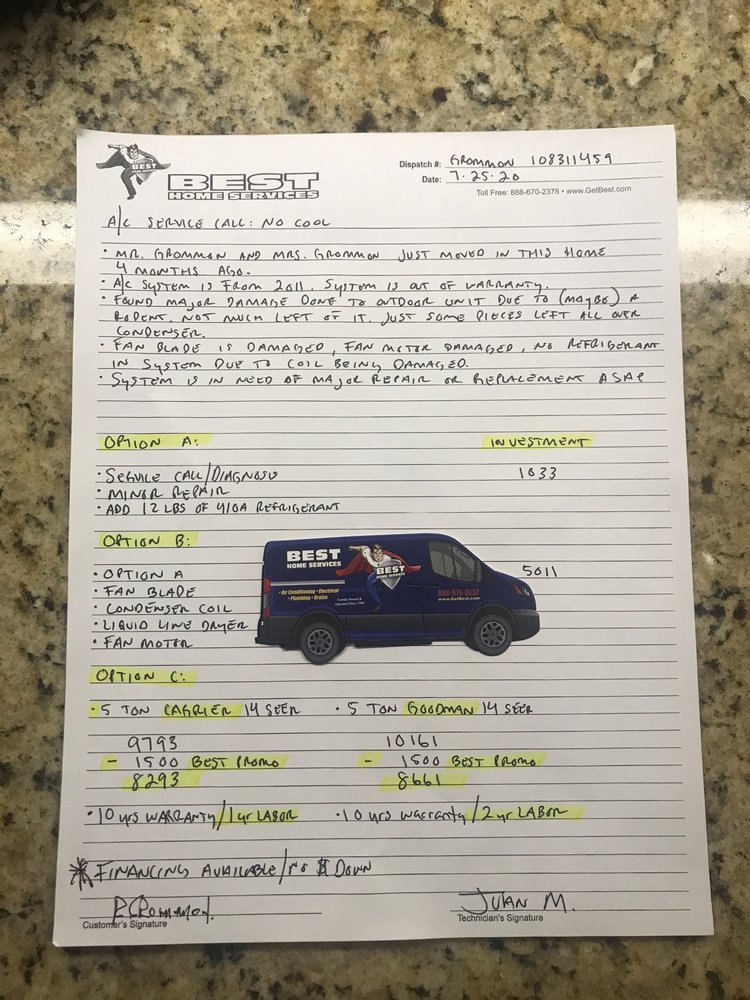 BEST
BEST
HOME SERVICES
Dispatch #: GROMMON 108311459
Date: 7.25.20
Toll Free: 888-670-2378 • www.GetBest.com
A/C SERVICE CALL: NO COOL
• MR. GROMMON AND MRS. GROMMON JUST MOVED IN THIS HOME
4 MONTHS AGO.
• A/C SYSTEM IS FROM 2011. SYSTEM IS OUT OF WARRANTY.
• FOUND MAJOR DAMAGE DONE TO OUTDOOR UNIT DUE TO (MAYBE) A
RODENT. NOT MUCH LEFT OF IT. JUST SOME PIECES LEFT ALL OVER
CONDENSER.
• FAN BLADE IS DAMAGED, FAN MOTOR DAMAGED, NO REFRIGERANT
IN SYSTEM DUE TO COIL BEING DAMAGED.
• SYSTEM IS IN NEED OF MAJOR REPAIR OR REPLACEMENT ASAP
OPTION A: INVESTMENT
• SERVICE CALL/DIAGNOSIS 1033
• MINOR REPAIR
• ADD 12 LBS OF 410A REFRIGERANT
OPTION B:
• OPTION A 5011
• FAN BLADE
• CONDENSER COIL
• LIQUID LINE DRYER
• FAN MOTOR
BEST
HOME SERVICES
BEST
HOME SERVICES
• Air Conditioning • Electrical
• Plumbing • Drains
Family Owned &
Operated Since 1980
888-670-BEST
www.GetBest.com
OPTION C:
• 5 TON CARRIER 14 SEER • 5 TON GOODMAN 14 SEER
9793 10161
- 1500 BEST PROMO - 1500 BEST PROMO
8293 8661
• 10 yrs WARRANTY/1yr LABOR • 10 yrs warranty/2yr LABOR
* FINANCING AVAILABLE/no $ DOWN
JUAN M.
Customer's Signature Technician's Signature